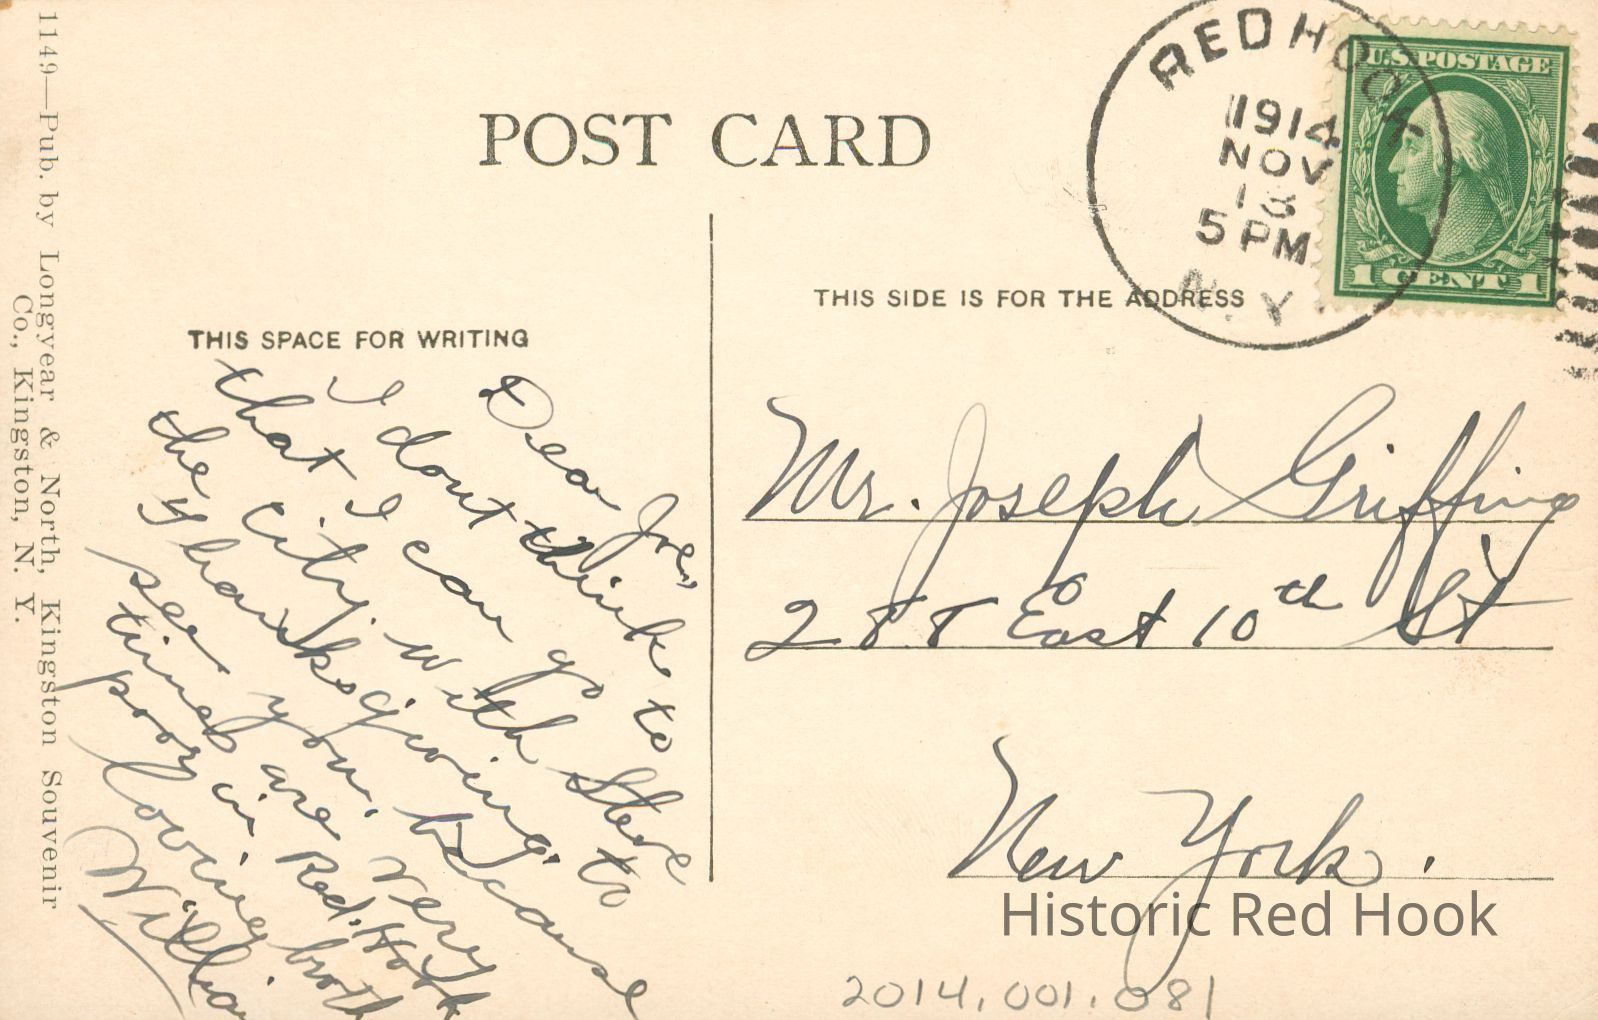 1149—Pub. by Longyear & North, Kingston Souvenir
Co., Kingston, N. Y.
POST CARD
THIS SPACE FOR WRITING
THIS SIDE IS FOR THE ADDRESS
RED HOOK
1914
NOV
13
5 PM
N.Y.
U.S. POSTAGE
1 CENT 1
Dear Joe,
I dont think to
that I can go
the city with Steve to
see you.
thanksgiving. because
times are very
poor in Red. Hook
loving broth
William
Mr. Joseph Griffing
288 East 10th St
New York.
Historic Red Hook
2014.001.081